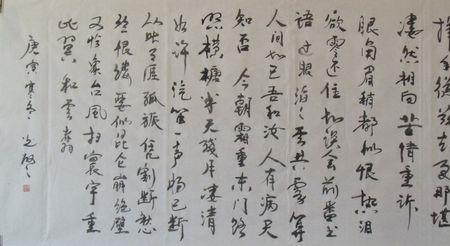 揮手從兹去更那堪
凄然相向苦情重訴
眼角眉梢都似恨熱泪
欲零还住知误会前番书
语过眼滔滔云共雾算
人间知己吾和汝人有病天
知否今朝霜重东门路
照横塘半天残月凄清
如许汽笛一声肠已断
从此天涯孤旅凭割断愁
丝恨缕要似昆仑崩绝壁
又恰象台风扫寰宇重
比翼和云翥
庚寅寒冬